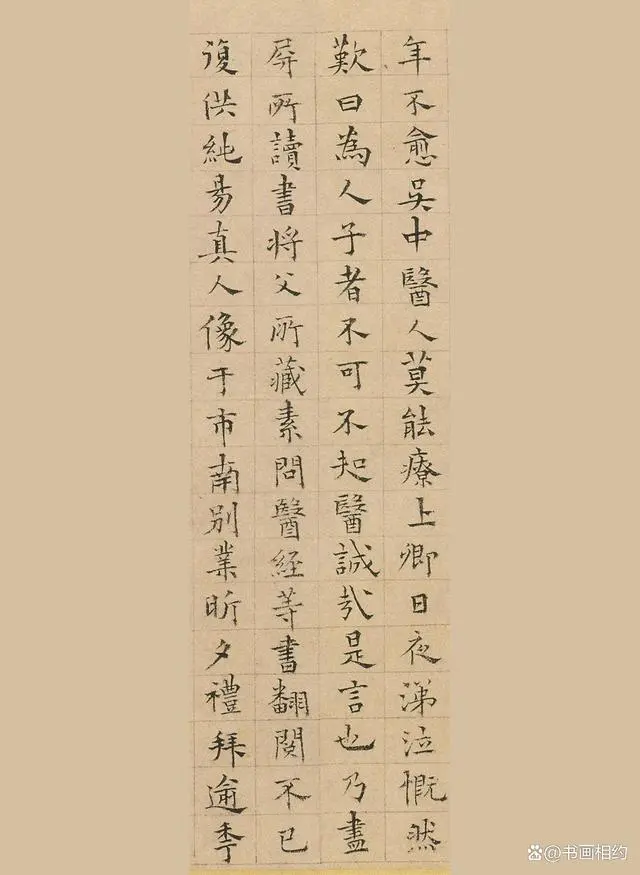 年不愈吳中醫人莫能療上卿日夜涕泣慨然
歎曰為人子者不可不知醫誠哉是言也乃盡
屏所讀書將父所藏素問醫經等書翻閱不已
復供純昜真人像于市南別業昕夕禮拜逾季
@书画相约